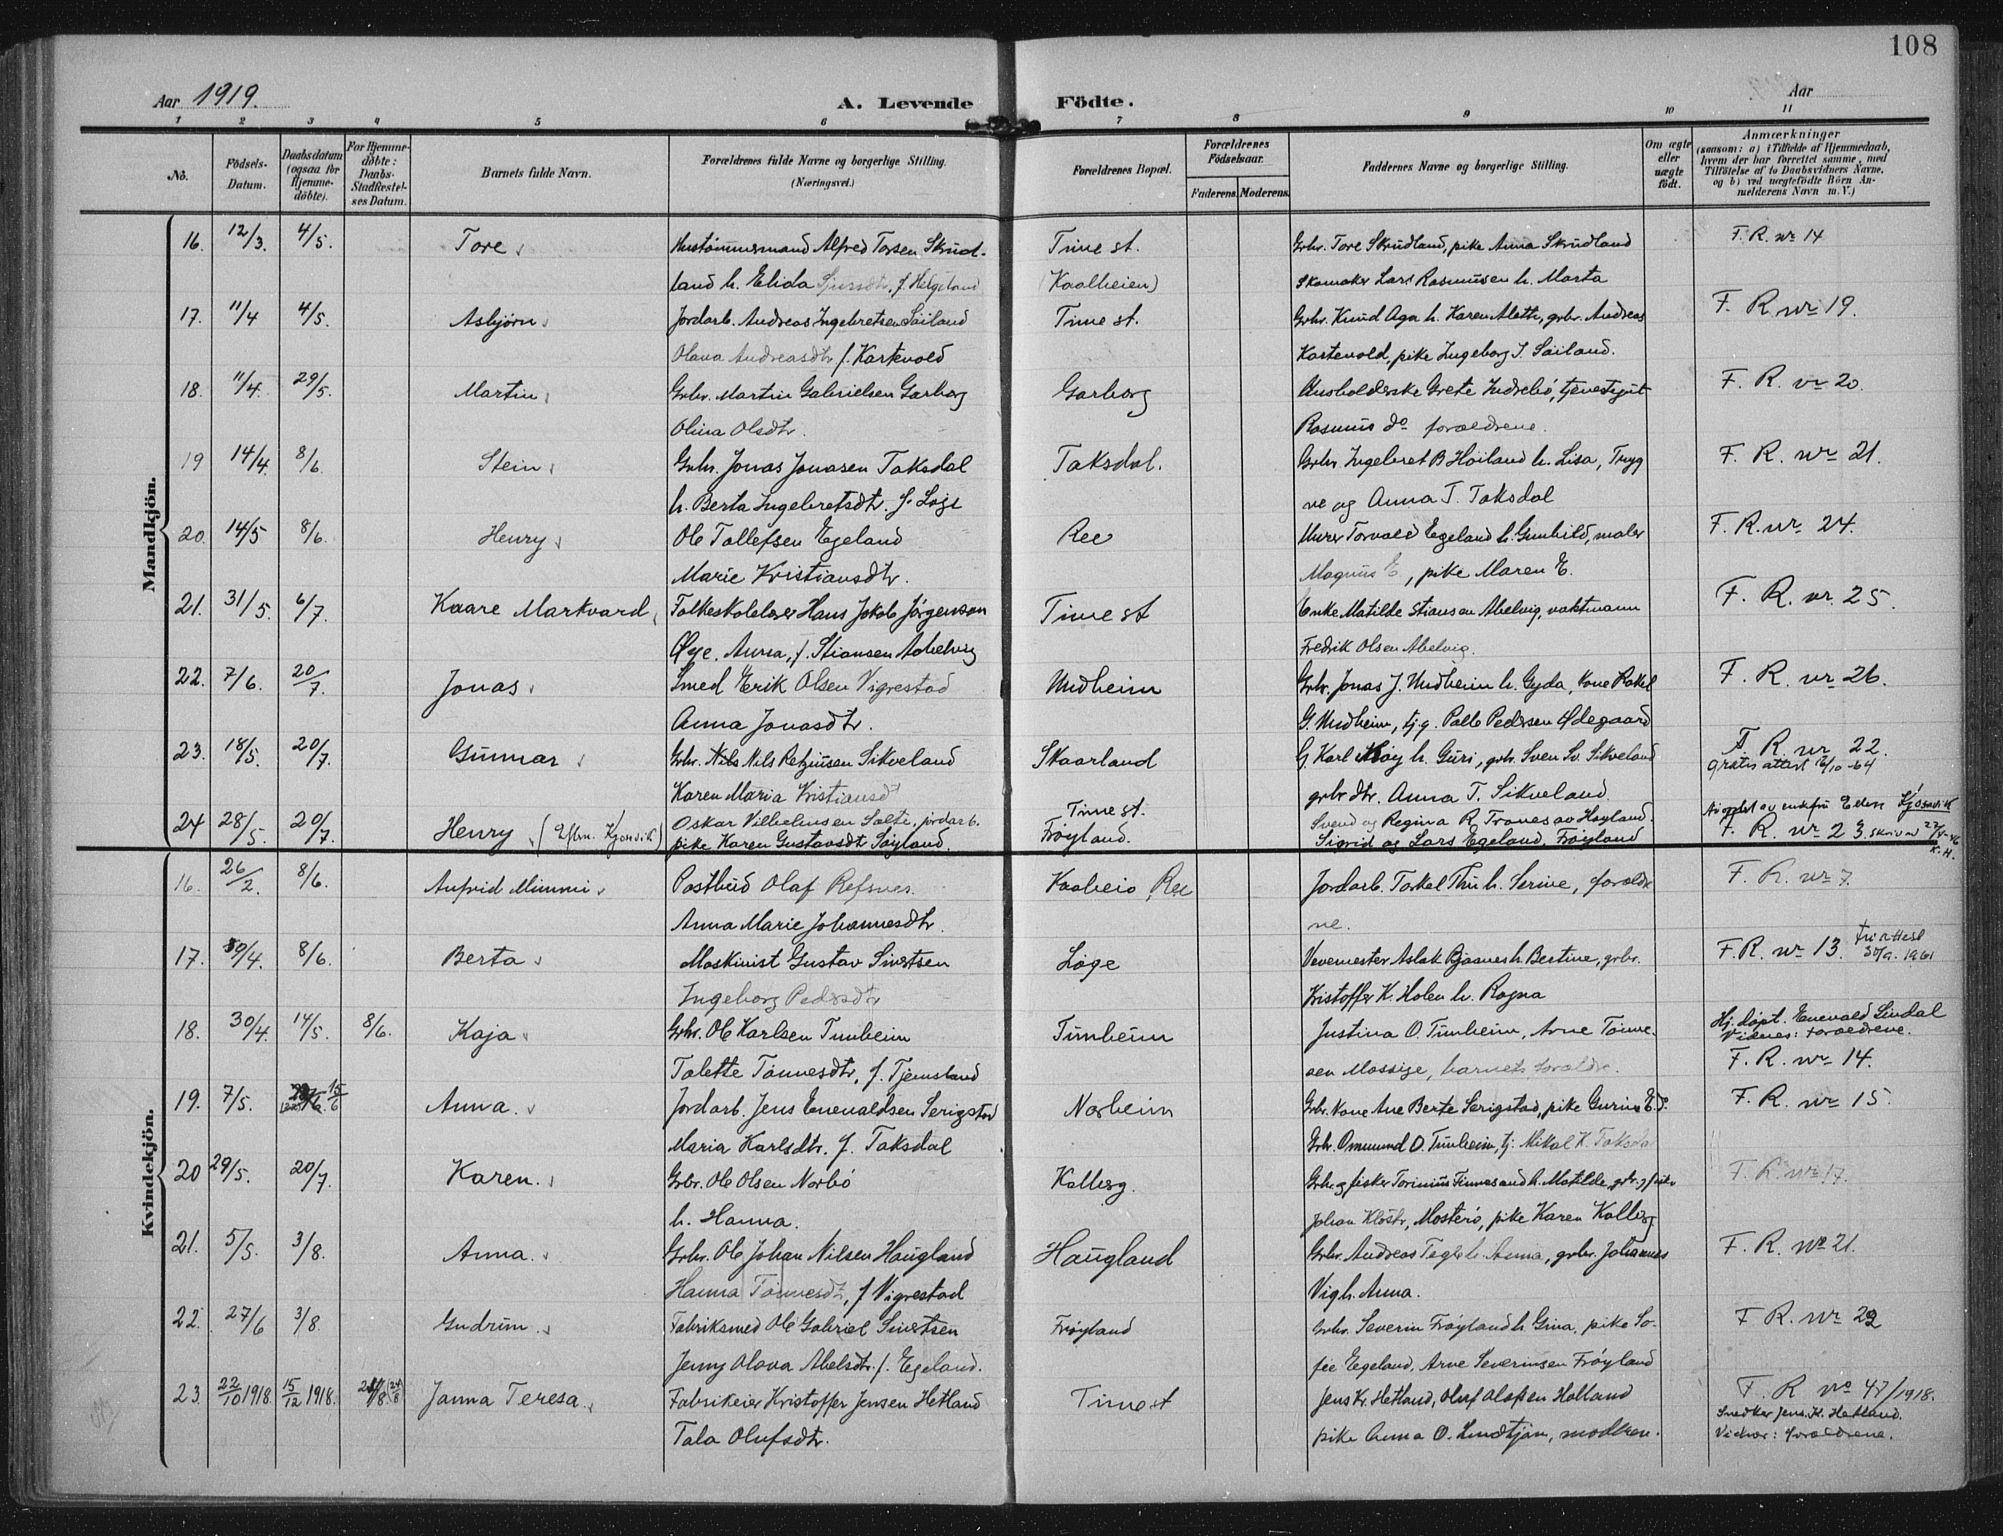 108
Aar 1919.
A. Levende Födte.
Aar
1 2 3 4 5 6 7 8 9 10 11
No.
Födsels-Datum.
Daabsdatum (ogsaa for Hjemme-døbte).
For Hjemme-døbte: Daabs-Stadfæstel-ses Datum.
Barnets fulde Navn.
Forældrenes fulde Navne og borgerlige Stilling.
(Næringsvei.)
Forældrenes Bopæl.
Forældrenes Födselsaar.
Faderens. Moderens.
Faddernes Navne og borgerlige Stilling.
Om ægte eller uægte født.
Anmærkninger
(saasom: a) i Tilfælde af Hjemmedaab, hvem der har forrettet samme, med Tilføielse af to Daabsvidners Navne, og b) ved uægtefødte Börn An-melderens Navn m. V.)
Mandkjön.
16. 12/3. 4/5. Tore Hustømmermand Alfred Torsen Skrud- Time st. Grbr. Tore Skrudland, pike Anna Skrudland F. R. nr 14
land h. Elida f. Helgeland (Kaalheien) Skomaker Lars Rasmussen h. Marta
17. 11/4 4/5. Asbjørn Jordarb. Andreas Ingebretsen Sæiland Time st. Grbr. Knud Aga h. Karen Alette, grbr. Andreas F. R. nr 19.
Olava Andreasdtr f. Kartevold Kartevold, pike Ingeborg J. Sæiland.
18. 11/4. 29/5. Martin Grbr. Martin Gabrielsen Garborg Garborg Husholderske Grete Undrebø, tjenestegut F. R. nr 20.
Olina Olsdtr. Rasmus do forældrene.
19 14/4 8/6. Stein Grbr. Jonas Jonasen Taksdal Taksdal. Grbr Ingebret B Høiland h. Lisa, Tryg F. R. nr 21.
h. Berta Ingebretsdtr. f. Løge ve og Anna T. Taksdal
20. 14/5 8/6. Henry Ole Tollefsen Egeland Ree Murer Torvald Egeland h. Gunhild, maler F. R. nr. 24.
Marie Kristiansdtr. Magnus E, pike Maren E.
21. 31/5. 6/7. Kaare Markvard Folkeskolelærer Hans Jakob Jørgensen Time st Enke Matilde Stiansen Abelvig, vaktmann F. R. nr. 25.
Øye. Anna, f. Stiansen Abelvig Fredrik Olsen Abelvig.
22. 7/6. 20/7. Jonas Smed Erik Olsen Vigrestad Undheim Grbr. Jonas J. Undheim h. Gyda, Kone Rakel F. R. nr 26.
Anna Jonasdtr. G. Undheim, tj.g. Palle Pedersen Ødegaard
23. 18/5. 20/7. Gunnar Grbr. Nils Nils Refsnisen Sikveland Skaarland G. Karl h. Guri, grbr. Sven Sv. Sikveland F. R. nr. 22.
Karen Maria Kristiansdt grbr dtr. Anna T. Sikveland gratis attest 12/10-64
24 28/5. 20/7. Henry (Efbn. Kjosavik) Oskar Vilhelmsen Salte, jordarb. Time st. Svend og Regina R. Tranes av Høyland. Adoptet av enkefru Eden Kjosavik
pike Karen Gustavsdtr Søyland. Frøyland. Sigrid og Lars Egeland, Frøyland F. R. nr 23. skriv av 27/5-46 K.H.
Kvindekjön.
16. 26/2. 8/6. Anfrid Mimmi Postbud Olaf Refsnes Kaalheio, Ree Jordarb. Torkel Thu h. Serine, foræld F. R. nr 7.
Anna Marie Johannesdtr. ne.
17. 30/4. 8/6. Berta Maskinist Gustav Sivertsen Løge Vevemester Aslak Bjaanes h. Bertine, grbr. F. R. nr 13. fri attest 30/9. 1961
Ingeborg Pedersdtr Kristoffer K. Holen h. Ragna
18. 30/4. 14/5. 8/6. Kaja Grbr. Ole Karlsen Tunheim Tunheim Justina O. Tunheim, Arne Tønne- Hj. døpt. Enevald Lindal
Vidnes: forældrene.
Talette Tønnesdtr, f. Tjemsland sen Mossige, barnets forældre. F. R. nr 14.
19. 7/5. 15/6 Anna. Jordarb. Jens Enevaldsen Serigstad Norheim Grbr. Kone Ane Berte Serigstad, pike Gurine E. S. F. R. nr 15.
Maria Karlsdtr. f. Taksdal Grbr. Ommund O. Tunheim, tj. Mikal K. Taksda
20 29/5. 20/7. Karen. Grbr. Ole Olsen Norbø Kalberg. Grbr. og fisker Torinius Finnesand h. Matilde, gbr. og fisker F. R. nr 17.
h. Hanna. Johan Klostr, Mosterø, pike Karen Kalberg
21. 5/5. 3/8. Anna. Grbr. Ole Johan Nilsen Haugland Haugland Grbr. Andreas Tegle h. Anna, grbr. Johannes F. R. nr 21.
Hanna Tønnesdtr, f Vigrestad Vig h. Anna.
22. 27/6 3/8. Gudrun Fabriksmed Ole Gabriel Sivertsen Frøyland Grbr. Severin Frøyland h Gina, pike So- F R. nr 22
Jenny Olava Abelsdtr. f. Egeland. fie Egeland, Arne Severinsen Frøyland
23. 22/10 1918 15/12 1918. 24/8 Janna Teresa Fabrikeier Kristoffer Jensen Hetland Time st Jens Kr. Hetland, Olaf Olafsen Holland F. R no 47/1918.
Snedker Jens. K. Hetland.
Tala Olufsdtr. pike Anna O. Lindtjøn, modren. Vidner: forældrene.